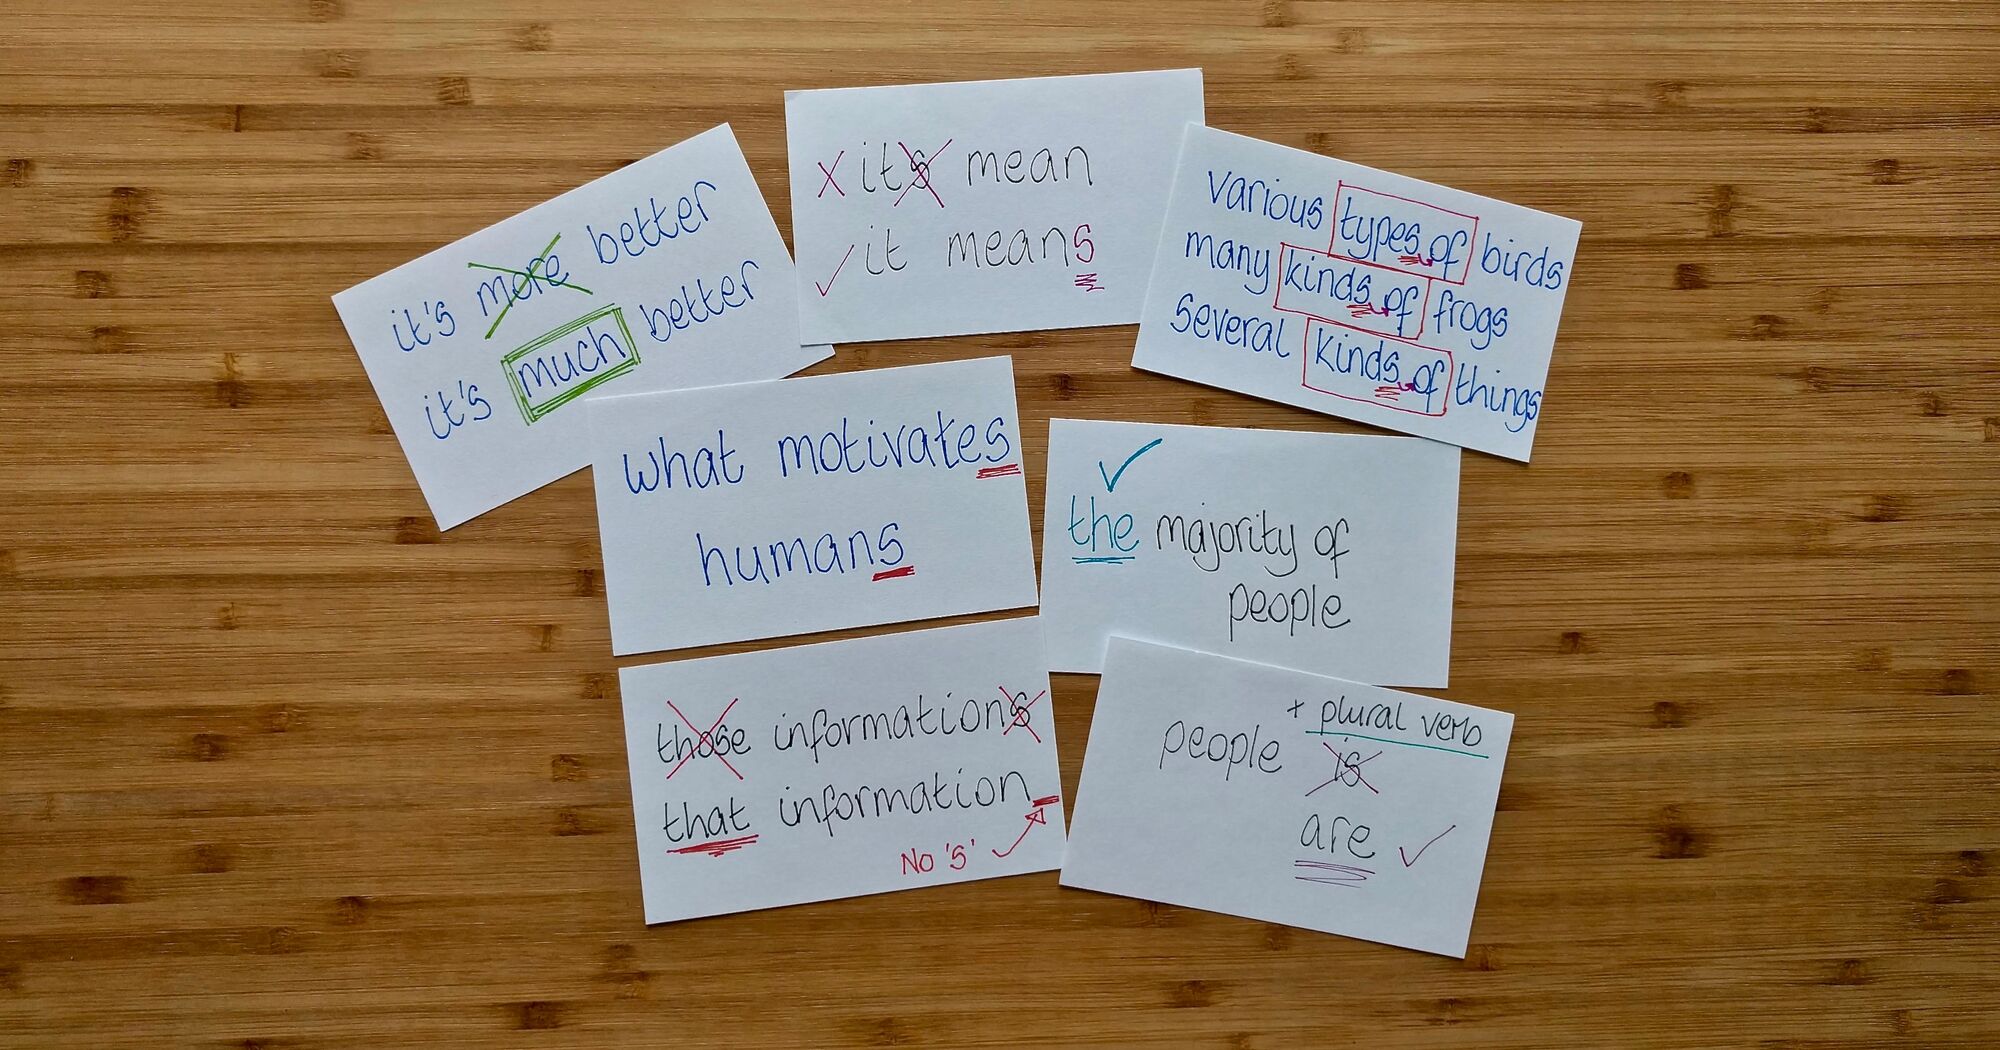 it's more better
it's much better
x its mean
✓ it means
various types of birds
many kinds of frogs
several kinds of things
what motivates
humans
✓
the majority of
people
those informations
that information
No 's'
+ plural verb
people is
are ✓